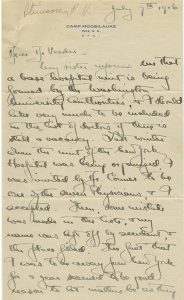 Stinson, N. H. July 7th 1916
CAMP MOOSILAUKE
Dear Dr Veeder
My sister informs me that
a base hospital unit is being
formed by the Washington
University Authorities & I should
like very much to be included
in the list of doctors if there is
still a vacancy. Last winter
when the unit of the New York
Hospital was being organized I
was invited by Dr Connor to be
one of the seven Physicians & I
accepted. Then some mistake
was made in the lists, & my
name was left off by accident &
the place filled. The fact that
I was to be away from New York
for a year seemed to be good
reason to let matters be as they